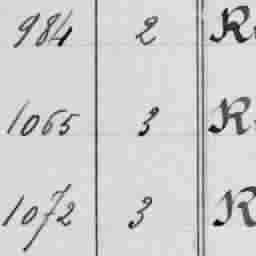 984 2 R
1065 3 R
1072 3 R